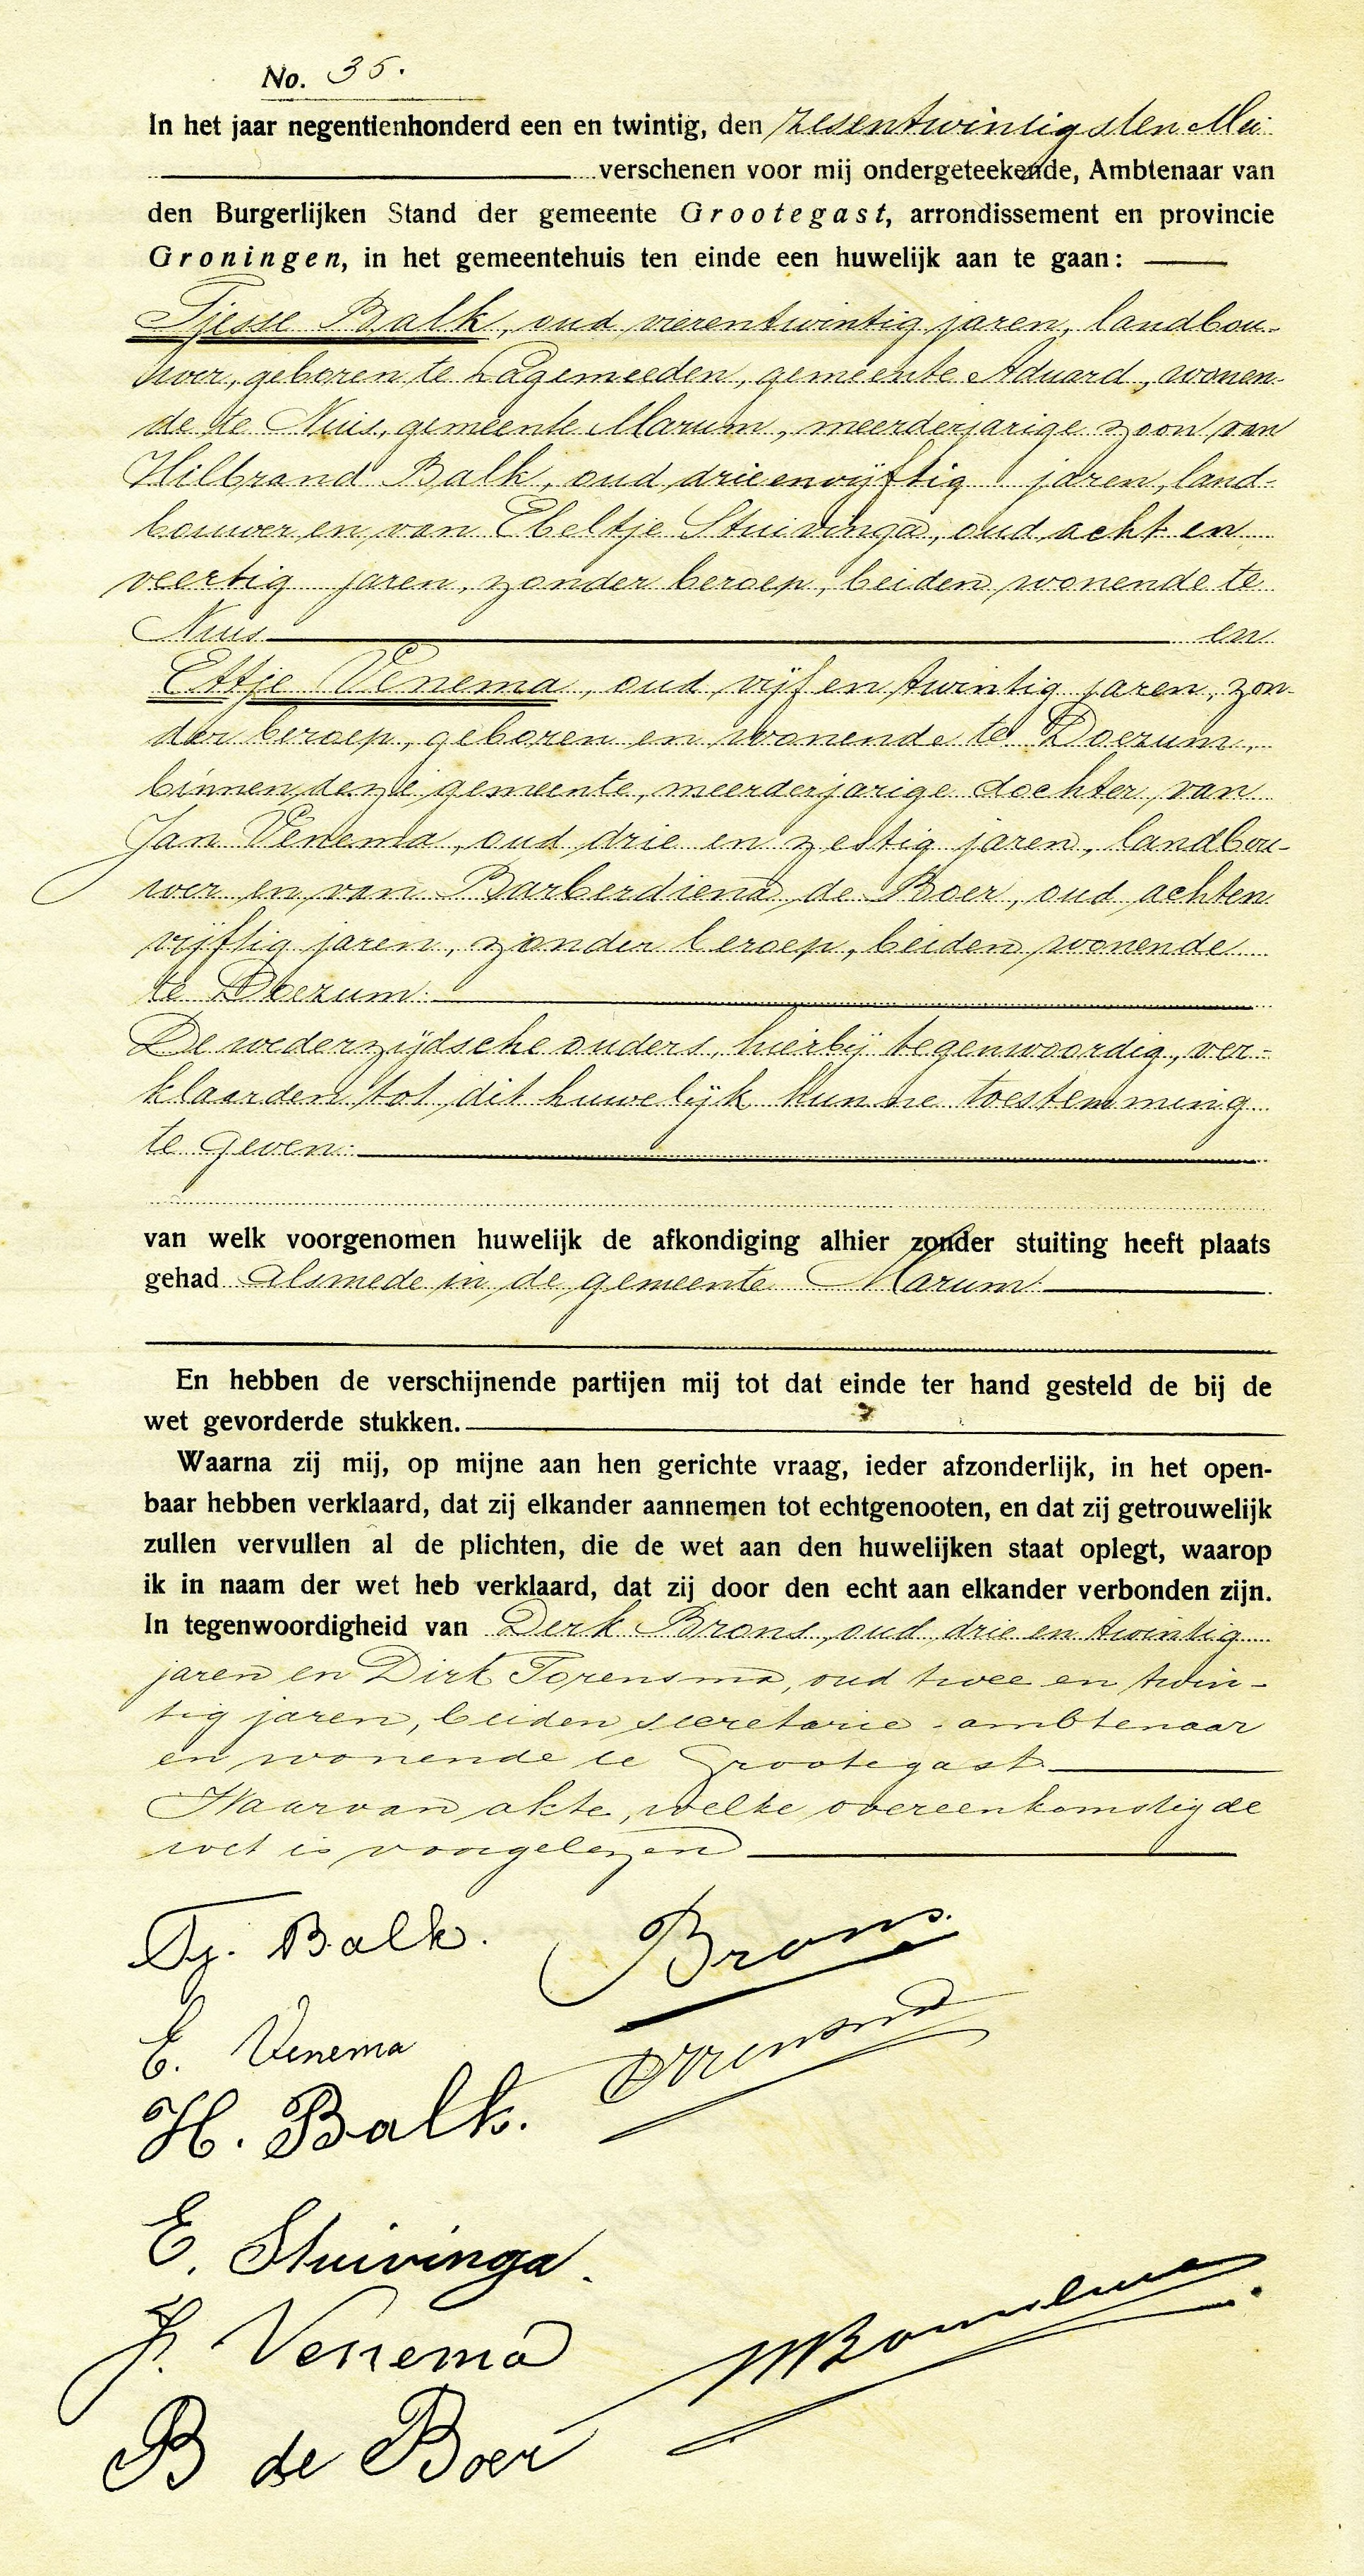 No. 35.
In het jaar negentienhonderd een en twintig, den zesentwintigsten Mei
verschenen voor mij ondergeteekende, Ambtenaar van
den Burgerlijken Stand der gemeente Grootegast, arrondissement en provincie
Groningen, in het gemeentehuis ten einde een huwelijk aan te gaan:
Tjesse Balk, oud vierentwintig jaren, landbou-
wer, geboren te Lagemeeden, gemeente Aduard, wonen-
de te Nuis, gemeente Marum, meerderjarige zoon van
Hilbrand Balk, oud drieenvijftig jaren, land-
bouwer en van Ebeltje Stuivinga, oud acht en
veertig jaren, zonder beroep, beiden wonende te
Nuis en
Ettje Venema, oud vijf en twintig jaren, zon-
der beroep, geboren en wonende te Doezum,
binnen deze gemeente, meerderjarige dochter van
Jan Venema, oud drie en zestig jaren, landbou-
wer en van Barberdiena de Boer, oud achten
vijftig jaren, zonder beroep, beiden wonende
te Doezum.
De wederzijdsche ouders, hierbij tegenwoordig, ver-
klaarden tot dit huwelijk hunne toestemming
te geven.
van welk voorgenomen huwelijk de afkondiging alhier zonder stuiting heeft plaats
gehad alsmede in de gemeente Marum.
En hebben de verschijnende partijen mij tot dat einde ter hand gesteld de bij de
wet gevorderde stukken.
Waarna zij mij, op mijne aan hen gerichte vraag, ieder afzonderlijk, in het open-
baar hebben verklaard, dat zij elkander aannemen tot echtgenooten, en dat zij getrouwelijk
zullen vervullen al de plichten, die de wet aan den huwelijken staat oplegt, waarop
ik in naam der wet heb verklaard, dat zij door den echt aan elkander verbonden zijn.
In tegenwoordigheid van Derk Brons, oud drie en twintig
jaren en Dirk Torensma, oud twee en twin-
tig jaren, beiden secretarie-ambtenaar
en wonende te Grootegast
Waarvan akte, welke overeenkomstig de
wet is voorgelezen
Tj. Balk. Brons.
E. Venema
H. Balk.
E. Stuivinga.
J. Venema
B de Boer